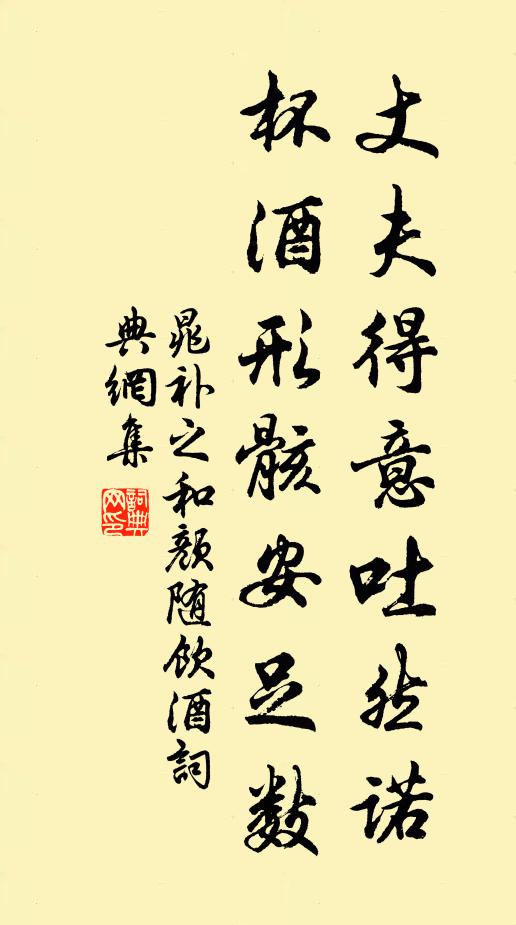 丈夫得意吐然诺
杯酒形骸安足数
晁补之和颜随饮酒詞
典網集
詞典網印